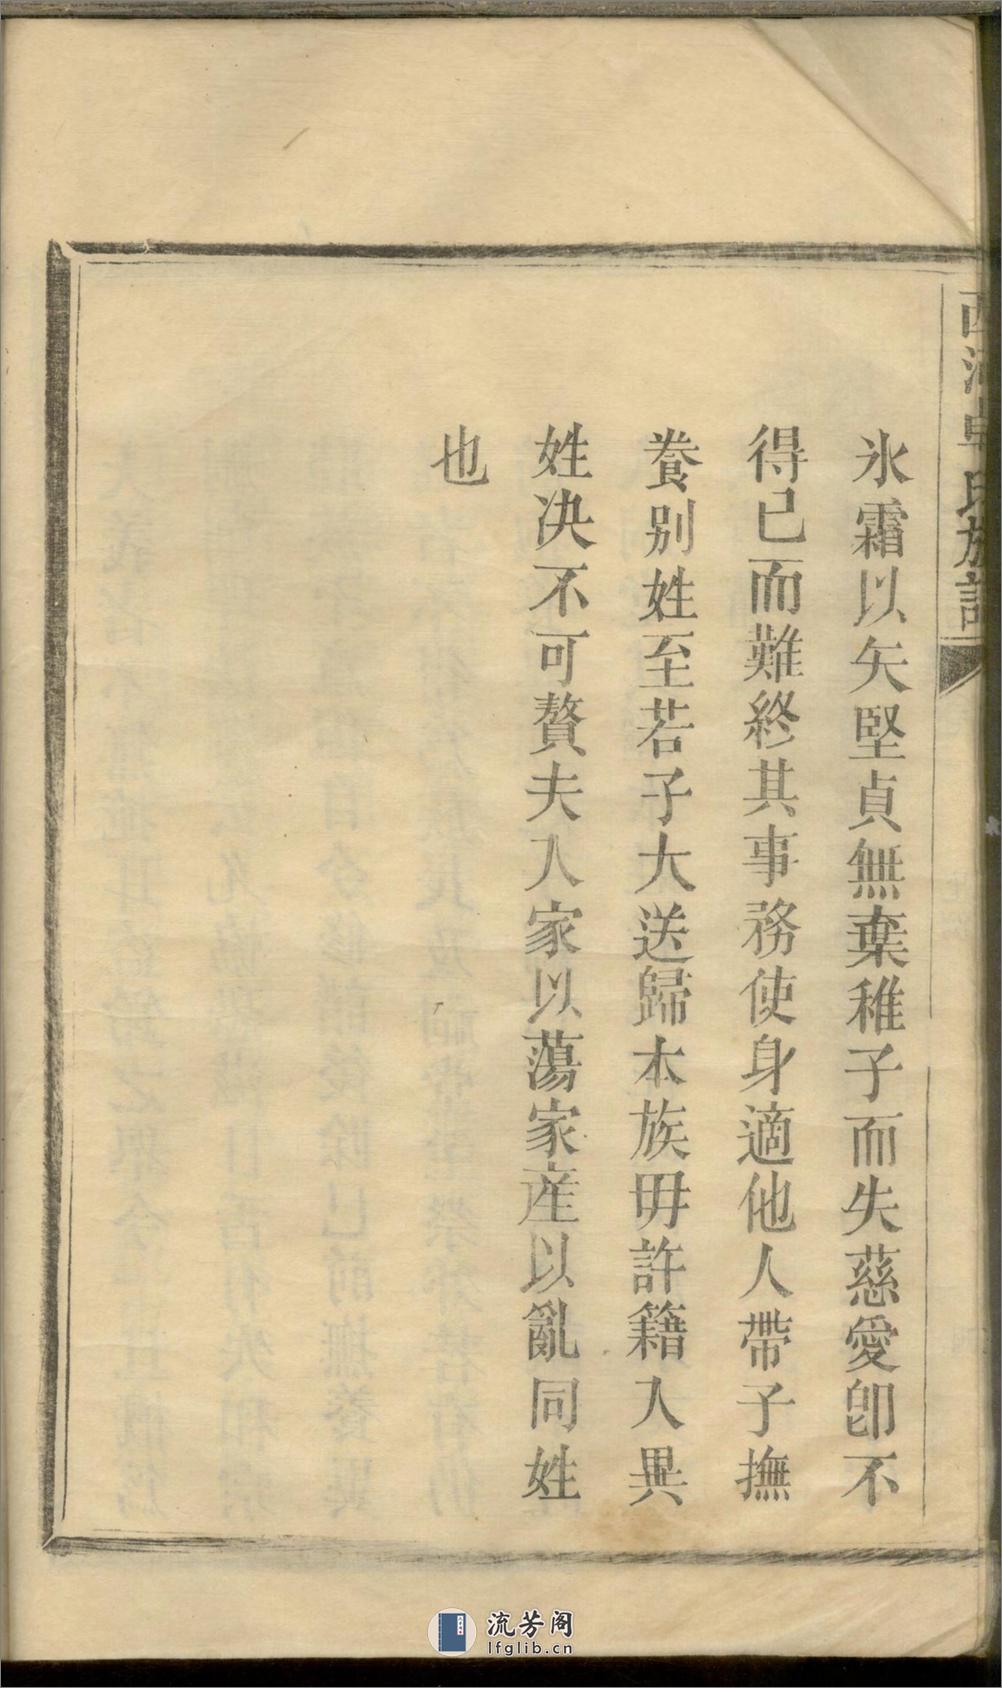 西河卓氏族譜
氷霜以矢堅貞無棄稚子而失慈愛卽不
得已而難終其事務使身適他人帶子撫
飬别姓至若子大送歸本族毋許籍入異
姓决不可贅夫入家以蕩家産以亂同姓
也
流芳阁
lfglib.cn